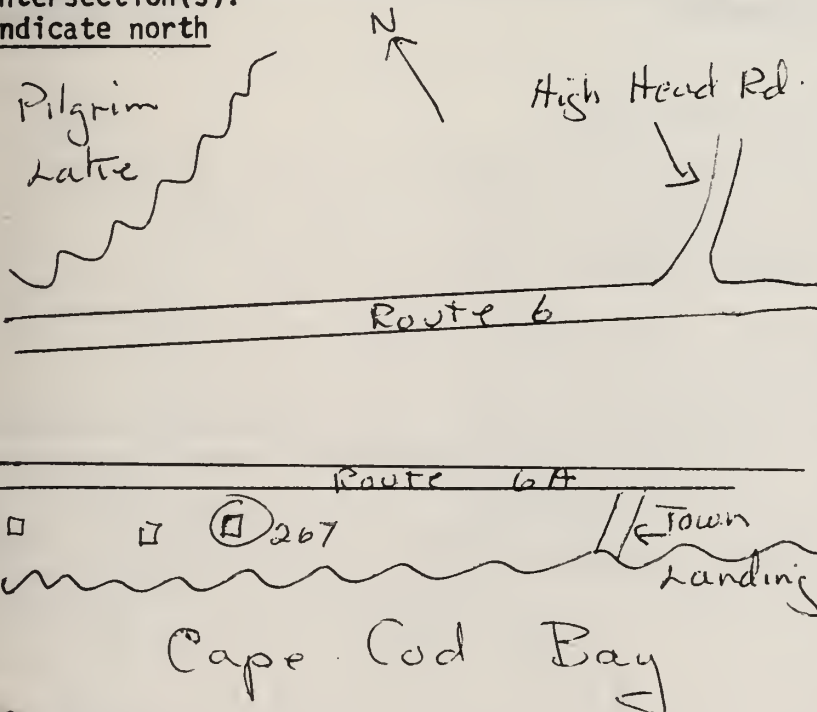 intersection(s).
indicate north
N
Pilgrim
Lake
High Head Rd.
Route 6
Route 6A
267
Town
Landing
Cape Cod Bay